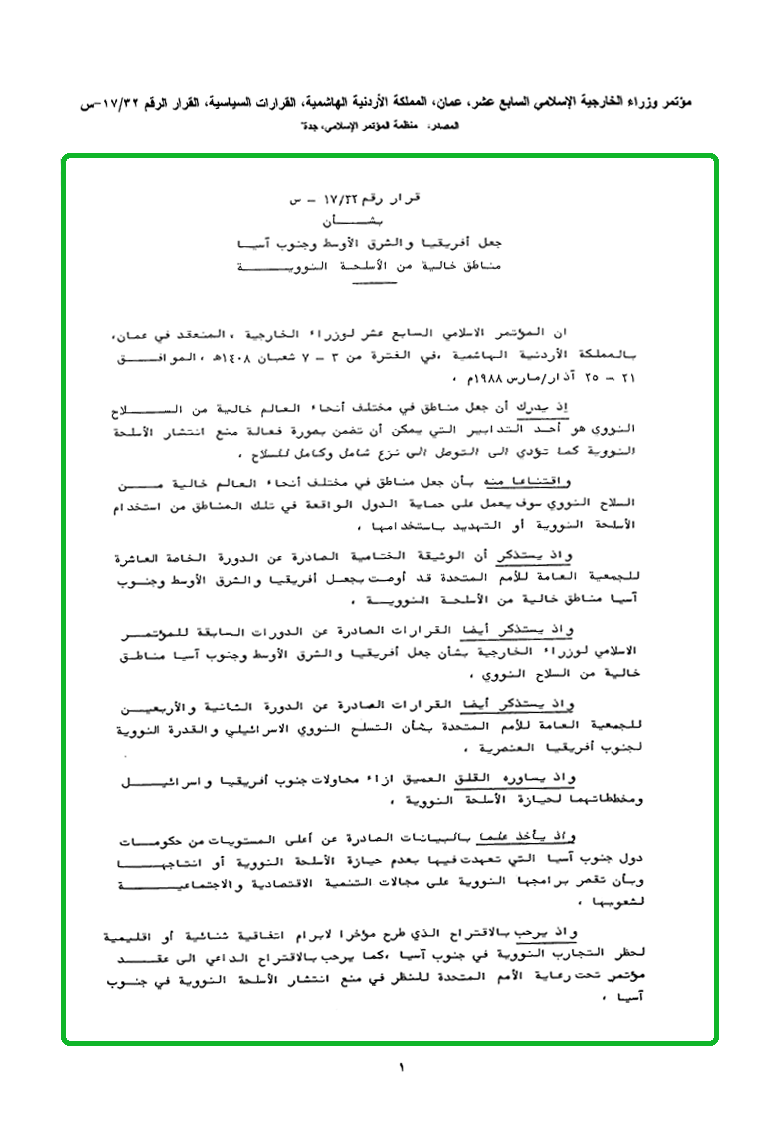 مؤتمر وزراء الخارجية الإسلامي السابع عشر، عمان، المملكة الأردنية الهاشمية، القرارات السياسية، القرار الرقم ١٧/٣٢-س
المصدر: منظمة المؤتمر الإسلامي، جدة"
قرار رقم ١٧/٣٢ – س
بشـــــأن
جعل أفريقيا والشرق الأوسط وجنوب آسيـا
مناطق خالية من الأسلحة النوويـــــة
ان المؤتمر الاسلامي السابع عشر لوزراء الخارجية ، المنعقد في عمان،
بالمملكة الأردنية الهاشمية ،في الفترة من ٣ – ٧ شعبان ١٤٠٨ه ، الموافــق
٢١ – ٢٥ آذار/مارس ١٩٨٨م ،
إذ يدرك أن جعل مناطق في مختلف أنحاء العالم خالية من الســـلاح
النووي هو أحد التدابير التي يمكن أن تضمن بصورة فعالة منع انتشار الأسلحة
النووية كما تؤدي الى التوصل الى نزع شامل وكامل للسلاح ،
واقتناعا منه بأن جعل مناطق في مختلف أنحاء العالم خالية مـــن
السلاح النووي سوف يعمل على حماية الدول الواقعة في تلك المناطق من استخدام
الأسلحة النووية أو التهديد باستخدامها ،
واذ يستذكر أن الوثيقة الختامية الصادرة عن الدورة الخاصة العاشرة
للجمعية العامة للأمم المتحدة قد أوصت بجعـل أفريقيا والشرق الأوسط وجنـوب
آسيا مناطق خالية من الأسلحة النوويـــة ،
واذ يستذكر أيضا القرارات الصادرة عن الدورات السابقة للمؤتمــر
الاسلامي لوزراء الخارجية بشأن جعل أفريقيا والشرق الأوسط وجنوب آسيا مناطـق
خالية من السلاح النووي ،
واذ يستذكر أيضا القرارات الصادرة عن الدورة الثانية والأربعيــن
للجمعية العامة للأمم المتحدة بشأن التسلح النووي الاسرائيلي والقدرة النووية
لجنوب أفريقيا العنصرية ،
واذ يساوره القلق العميق ازاء محاولات جنوب أفريقيا واسرائيـــل
ومخططاتهما لحيازة الأسلحة النووية ،
واذ يأخذ علما بالبيانات الصادرة عن أعلى المستويات من حكومــات
دول جنوب آسيا التي تعهدت فيها بعدم حيازة الأسلحة النووية أو انتاجهــا
وبأن تقصر برامجها النووية على مجالات التنمية الاقتصادية والاجتماعيـــة
لشعوبها ،
واذ يرحب بالاقتراح الذي طرح مؤخرا لابرام اتفاقية ثنائية أو اقليمية
لحظر التجارب النووية في جنوب آسيا ،كما يرحب بالاقتراح الداعي الى عقــد
مؤتمر تحت رعاية الأمم المتحدة للنظر في منع انتشار الأسلحة النووية في جنـوب
آسيا ،
١